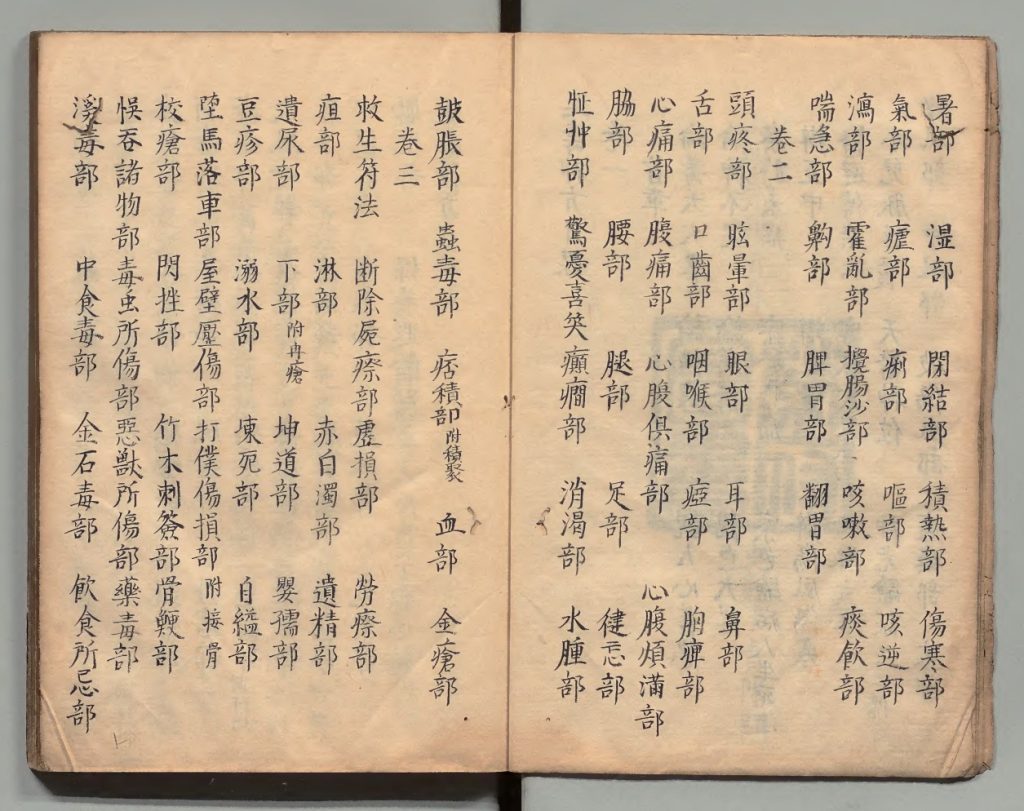 暑部 湿部 閉結部 積熱部 傷寒部
氣部 瘧部 痢部 嘔部 咳逆部
瀉部 霍亂部 攪腸沙部 咳嗽部 痰飲部
喘急部 齁部 脾胃部 翻胃部
卷二
頭疼部 眩暈部 眼部 耳部 鼻部
舌部 口齒部 咽喉部 瘂部 胸痺部
心痛部 腹痛部 心腹俱痛部 心腹煩滿部
脇部 腰部 腿部 足部 健忘部
怔忡部 驚憂喜笑癲癇部 消渴部 水腫部
鼓脹部 蟲毒部 痞積部附積聚 血部 金瘡部
卷三
救生符法 断除屍瘵部 虛損部 勞瘵部
疽部 淋部 赤白濁部 遺精部
遺尿部 下部附冉瘡 坤道部 嬰孺部
豆疹部 溺水部 凍死部 自縊部
墮馬落車部 屋壁壓傷部 打僕傷損部附接骨
杖瘡部 閃挫部 竹木刺簽部 骨鯁部
悞吞諸物部 毒虫所傷部 惡獸所傷部 藥毒部
溪毒部 中食毒部 金石毒部 飲食所忌部